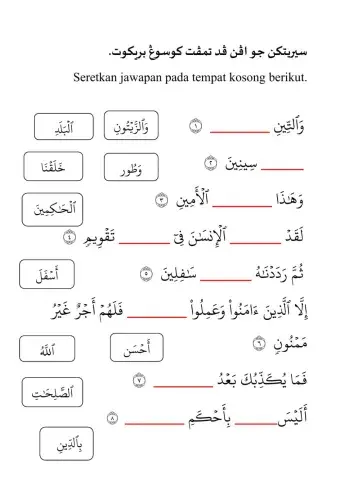 سيريتكن جواڤن ڤد تمڤت كوسوڠ بريكوت.
Seretkan jawapan pada tempat kosong berikut.
وَٱلتِّينِ ________ ١
وَٱلزَّيْتُونِ
ٱلْبَلَدِ
________ سِينِينَ ٢
وَطُورِ
خَلَقْنَا
وَهَـٰذَا ________ ٱلْأَمِينِ ٣
ٱلْحَـٰكِمِينَ
لَقَدْ ________ ٱلْإِنسَـٰنَ فِىٓ ________ تَقْوِيمٍ ٤
ثُمَّ رَدَدْنَـٰهُ ________ سَـٰفِلِينَ ٥
أَسْفَلَ
إِلَّا ٱلَّذِينَ ءَامَنُوا۟ وَعَمِلُوا۟ ________ فَلَهُمْ أَجْرٌ غَيْرُ
مَمْنُونٍ ٦
أَحْسَنِ
ٱللَّهُ
فَمَا يُكَذِّبُكَ بَعْدُ ________ ٧
ٱلصَّـٰلِحَـٰتِ
أَلَيْسَ ________ بِأَحْكَمِ ________ ٨
بِٱلدِّينِ